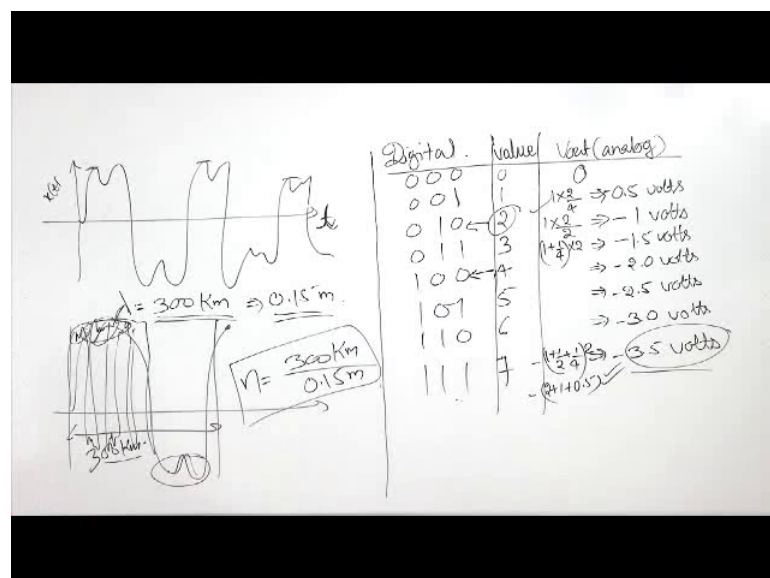 x(t)
t
λ = 300 Km ⇒ 0.15 m.
n = 300 Km / 0.15 m
300 Km
Digital. | Value | Vout (analog)
0 0 0 | 0 | 0
0 0 1 | 1 | 1×2/4 ⇒ 0.5 volts
0 1 0 ← | 2 | 1×2/2 ⇒ -1 volts
0 1 1 | 3 | (1+1/4)×2 ⇒ -1.5 volts
1 0 0 ← | 4 | ⇒ -2.0 volts
1 0 1 | 5 | ⇒ -2.5 volts
1 1 0 | 6 | ⇒ -3.0 volts
1 1 1 | 7 | -(1+1/2+1/4)2 ⇒ -3.5 volts
-(2+1+0.5)